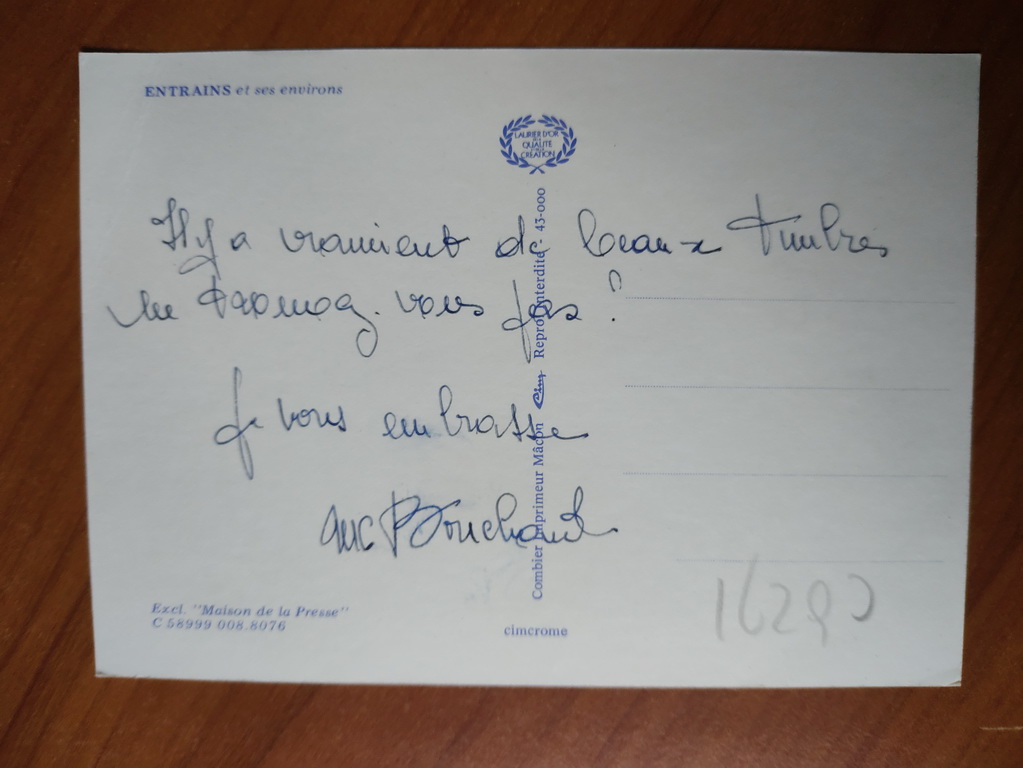 ENTRAINS et ses environs
LAURIER D'OR
DE LA
QUALITÉ
CRÉATION
Il y a vraiment de beaux timbres
vous
Je vous embrasse
Bouchard
Combier Imprimeur Mâcon Cim Repro. Interdite - 43-000
Excl. "Maison de la Presse"
C 58999 008.8076
cimcrome